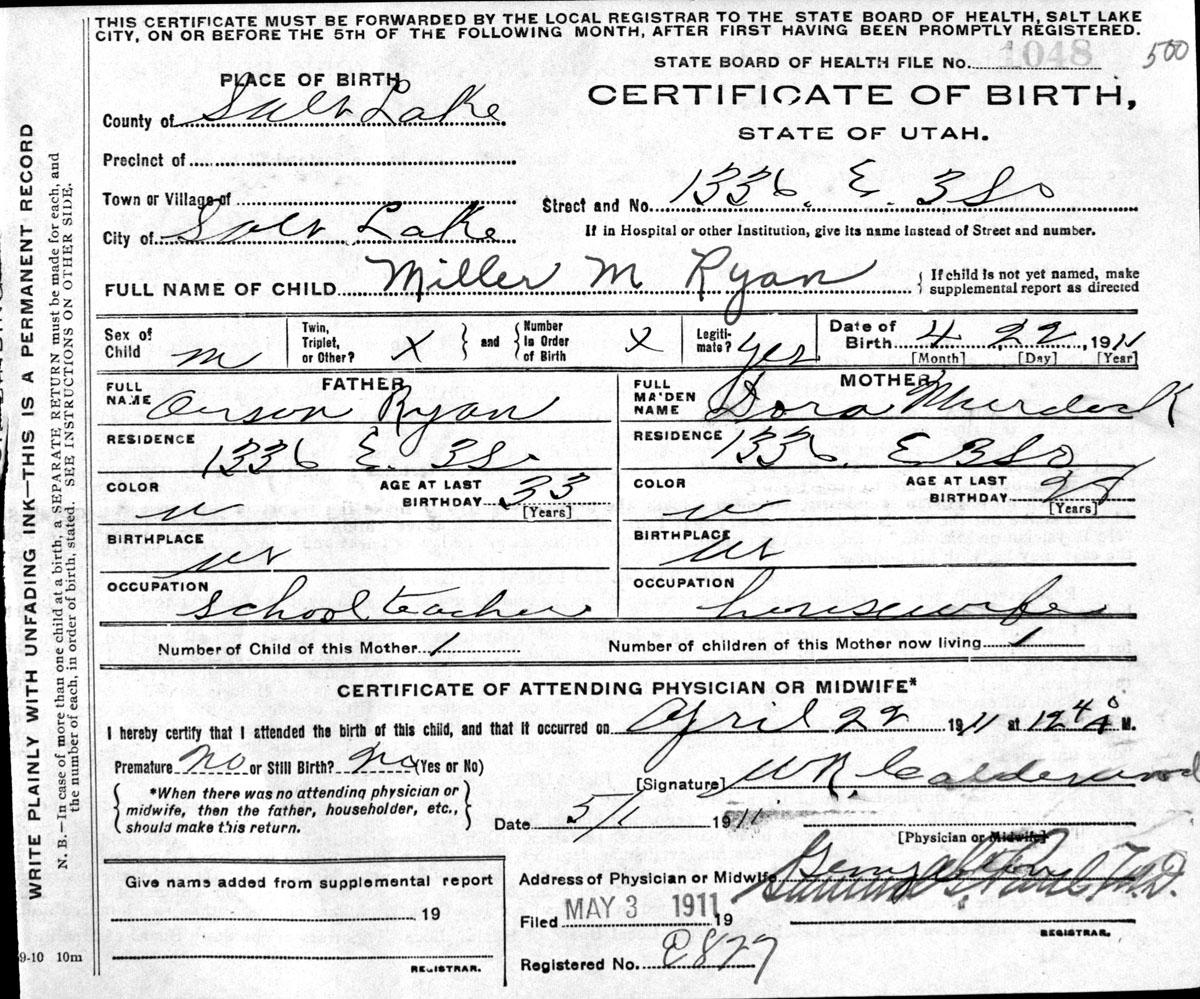 THIS CERTIFICATE MUST BE FORWARDED BY THE LOCAL REGISTRAR TO THE STATE BOARD OF HEALTH, SALT LAKE
CITY, ON OR BEFORE THE 5TH OF THE FOLLOWING MONTH, AFTER FIRST HAVING BEEN PROMPTLY REGISTERED.
STATE BOARD OF HEALTH FILE No. 1048 500
PLACE OF BIRTH
CERTIFICATE OF BIRTH,
STATE OF UTAH.
County of Salt Lake
Precinct of
Town or Village of
Street and No. 1336. E. 3 So
City of Salt Lake
If in Hospital or other Institution, give its name instead of Street and number.
FULL NAME OF CHILD Miller M Ryan { If child is not yet named, make
supplemental report as directed
Sex of Child m
Twin, Triplet, or Other? X } and { Number in Order of Birth X
Legiti-mate? yes
Date of Birth 4 22, 1911
[Month] [Day] [Year]
FATHER
FULL NAME Orson Ryan
RESIDENCE 1336 E. 3 So
COLOR w AGE AT LAST BIRTHDAY 33
[Years]
BIRTHPLACE Ut
OCCUPATION school teacher
MOTHER
FULL MAIDEN NAME Dora Murdock
RESIDENCE 1336. E 3 So
COLOR w AGE AT LAST BIRTHDAY
[Years]
BIRTHPLACE Ut
OCCUPATION housewife
Number of Child of this Mother 1 Number of children of this Mother now living 1
CERTIFICATE OF ATTENDING PHYSICIAN OR MIDWIFE*
I hereby certify that I attended the birth of this child, and that it occurred on April 22 1911 at 12 40 A M.
Premature No or Still Birth? No (Yes or No)
[Signature] W R Calderwood
{ *When there was no attending physician or
midwife, then the father, householder, etc.,
should make this return. }
Date 5/1 1911
[Physician or Midwife]
Give name added from supplemental report
19
REGISTRAR.
Address of Physician or Midwife
Samuel G. Paul M.D.
Filed MAY 3 1911 19
REGISTRAR.
Registered No. 877
9-10 10m
WRITE PLAINLY WITH UNFADING INK—THIS IS A PERMANENT RECORD
N. B.—In case of more than one child at a birth, a SEPARATE RETURN must be made for each, and
the number of each, in order of birth, stated. SEE INSTRUCTIONS ON OTHER SIDE.